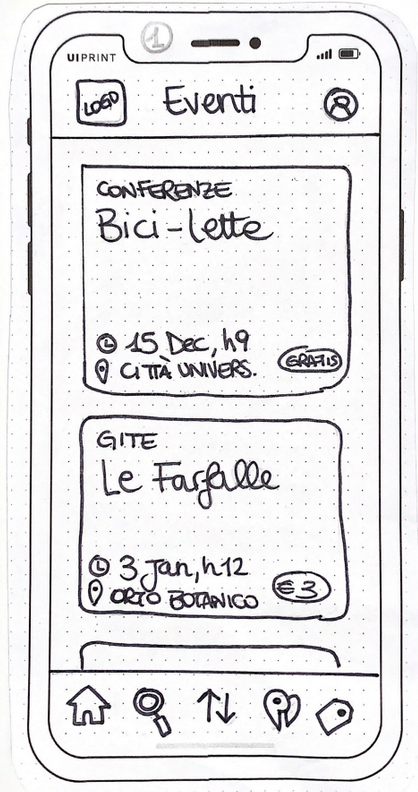 1
UIPRINT
LOGO
Eventi
CONFERENZE
Bici-lette
15 Dec, h9
CITTÀ UNIVERS.
GRATIS
GITE
Le Farfalle
3 Jan, h12
ORTO BOTANICO
€3